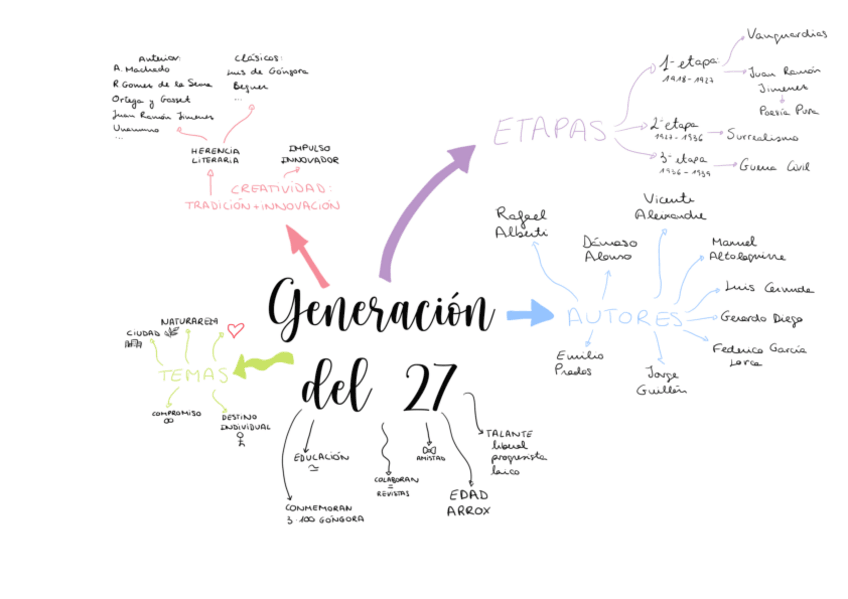 Anterior:
A. Machado
R Gomes de la Serna
Ortega y Gasset
Juan Ramón Jimenes
Unamuno
...
Clásicos:
Luis de Góngora
Bequer
...
HERENCIA
LITERARIA
IMPULSO
INNOVADOR
CREATIVIDAD:
TRADICIÓN + INNOVACIÓN
ETAPAS
1ª etapa:
1918-1927
Vanguardias
Juan Ramón
Jimenes
Poesia Pura
2ª etapa
1927-1936
Surrealismo
3ª etapa
1936-1939
Guerra Civil
Generación
del 27
AUTORES
Rafael
Alberti
Dámaso
Alonso
Vicente
Aleixandre
Manuel
Altolaguirre
Luis Cernuda
Gerardo Diego
Federico García
Lorca
Jorge
Guillén
Emilio
Prados
TEMAS
CIUDAD
NATURALEZA
COMPROMISO
DESTINO
INDIVIDUAL
EDUCACIÓN
≃
CONMEMORAN
3·100 GÓNGORA
COLABORAN
=
REVISTAS
AMISTAD
EDAD
ARROX
TALANTE
liberal
progresista
laico